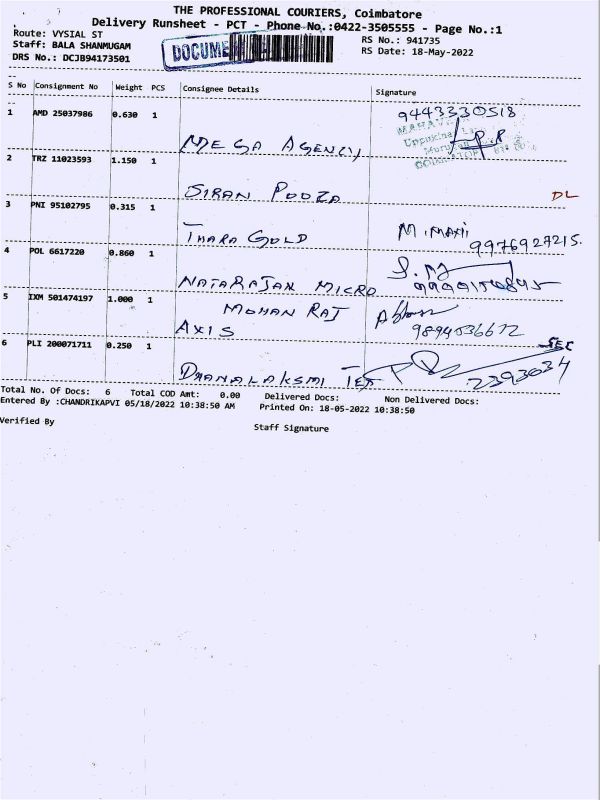 THE PROFESSIONAL COURIERS, Coimbatore
Delivery Runsheet - PCT - Phone No.:0422-3505555 - Page No.:1
Route: VYSIAL ST
Staff: BALA SHANMUGAM
DRS No.: DCJB94173501
DOCUME
RS No.: 941735
RS Date: 18-May-2022
S No Consignment No Weight PCS Consignee Details Signature
1 AMD 25037986 0.630 1 MEGA AGENCY 9443330518
2 TRZ 11023593 1.150 1 SIRAN POOZA DL
3 PNI 95102795 0.315 1 THARA GOLD M. MANI 9976927215.
4 POL 6617220 0.860 1 NATARAJAN MICRO
5 IXM 501474197 1.000 1 MOHAN RAJ
AXIS 9894036672
6 PLI 200071711 0.250 1 DHANALAKSMI TEX SEC 2393634
Total No. Of Docs: 6 Total COD Amt: 0.00 Delivered Docs: Non Delivered Docs:
Entered By :CHANDRIKAPVI 05/18/2022 10:38:50 AM Printed On: 18-05-2022 10:38:50
Verified By
Staff Signature